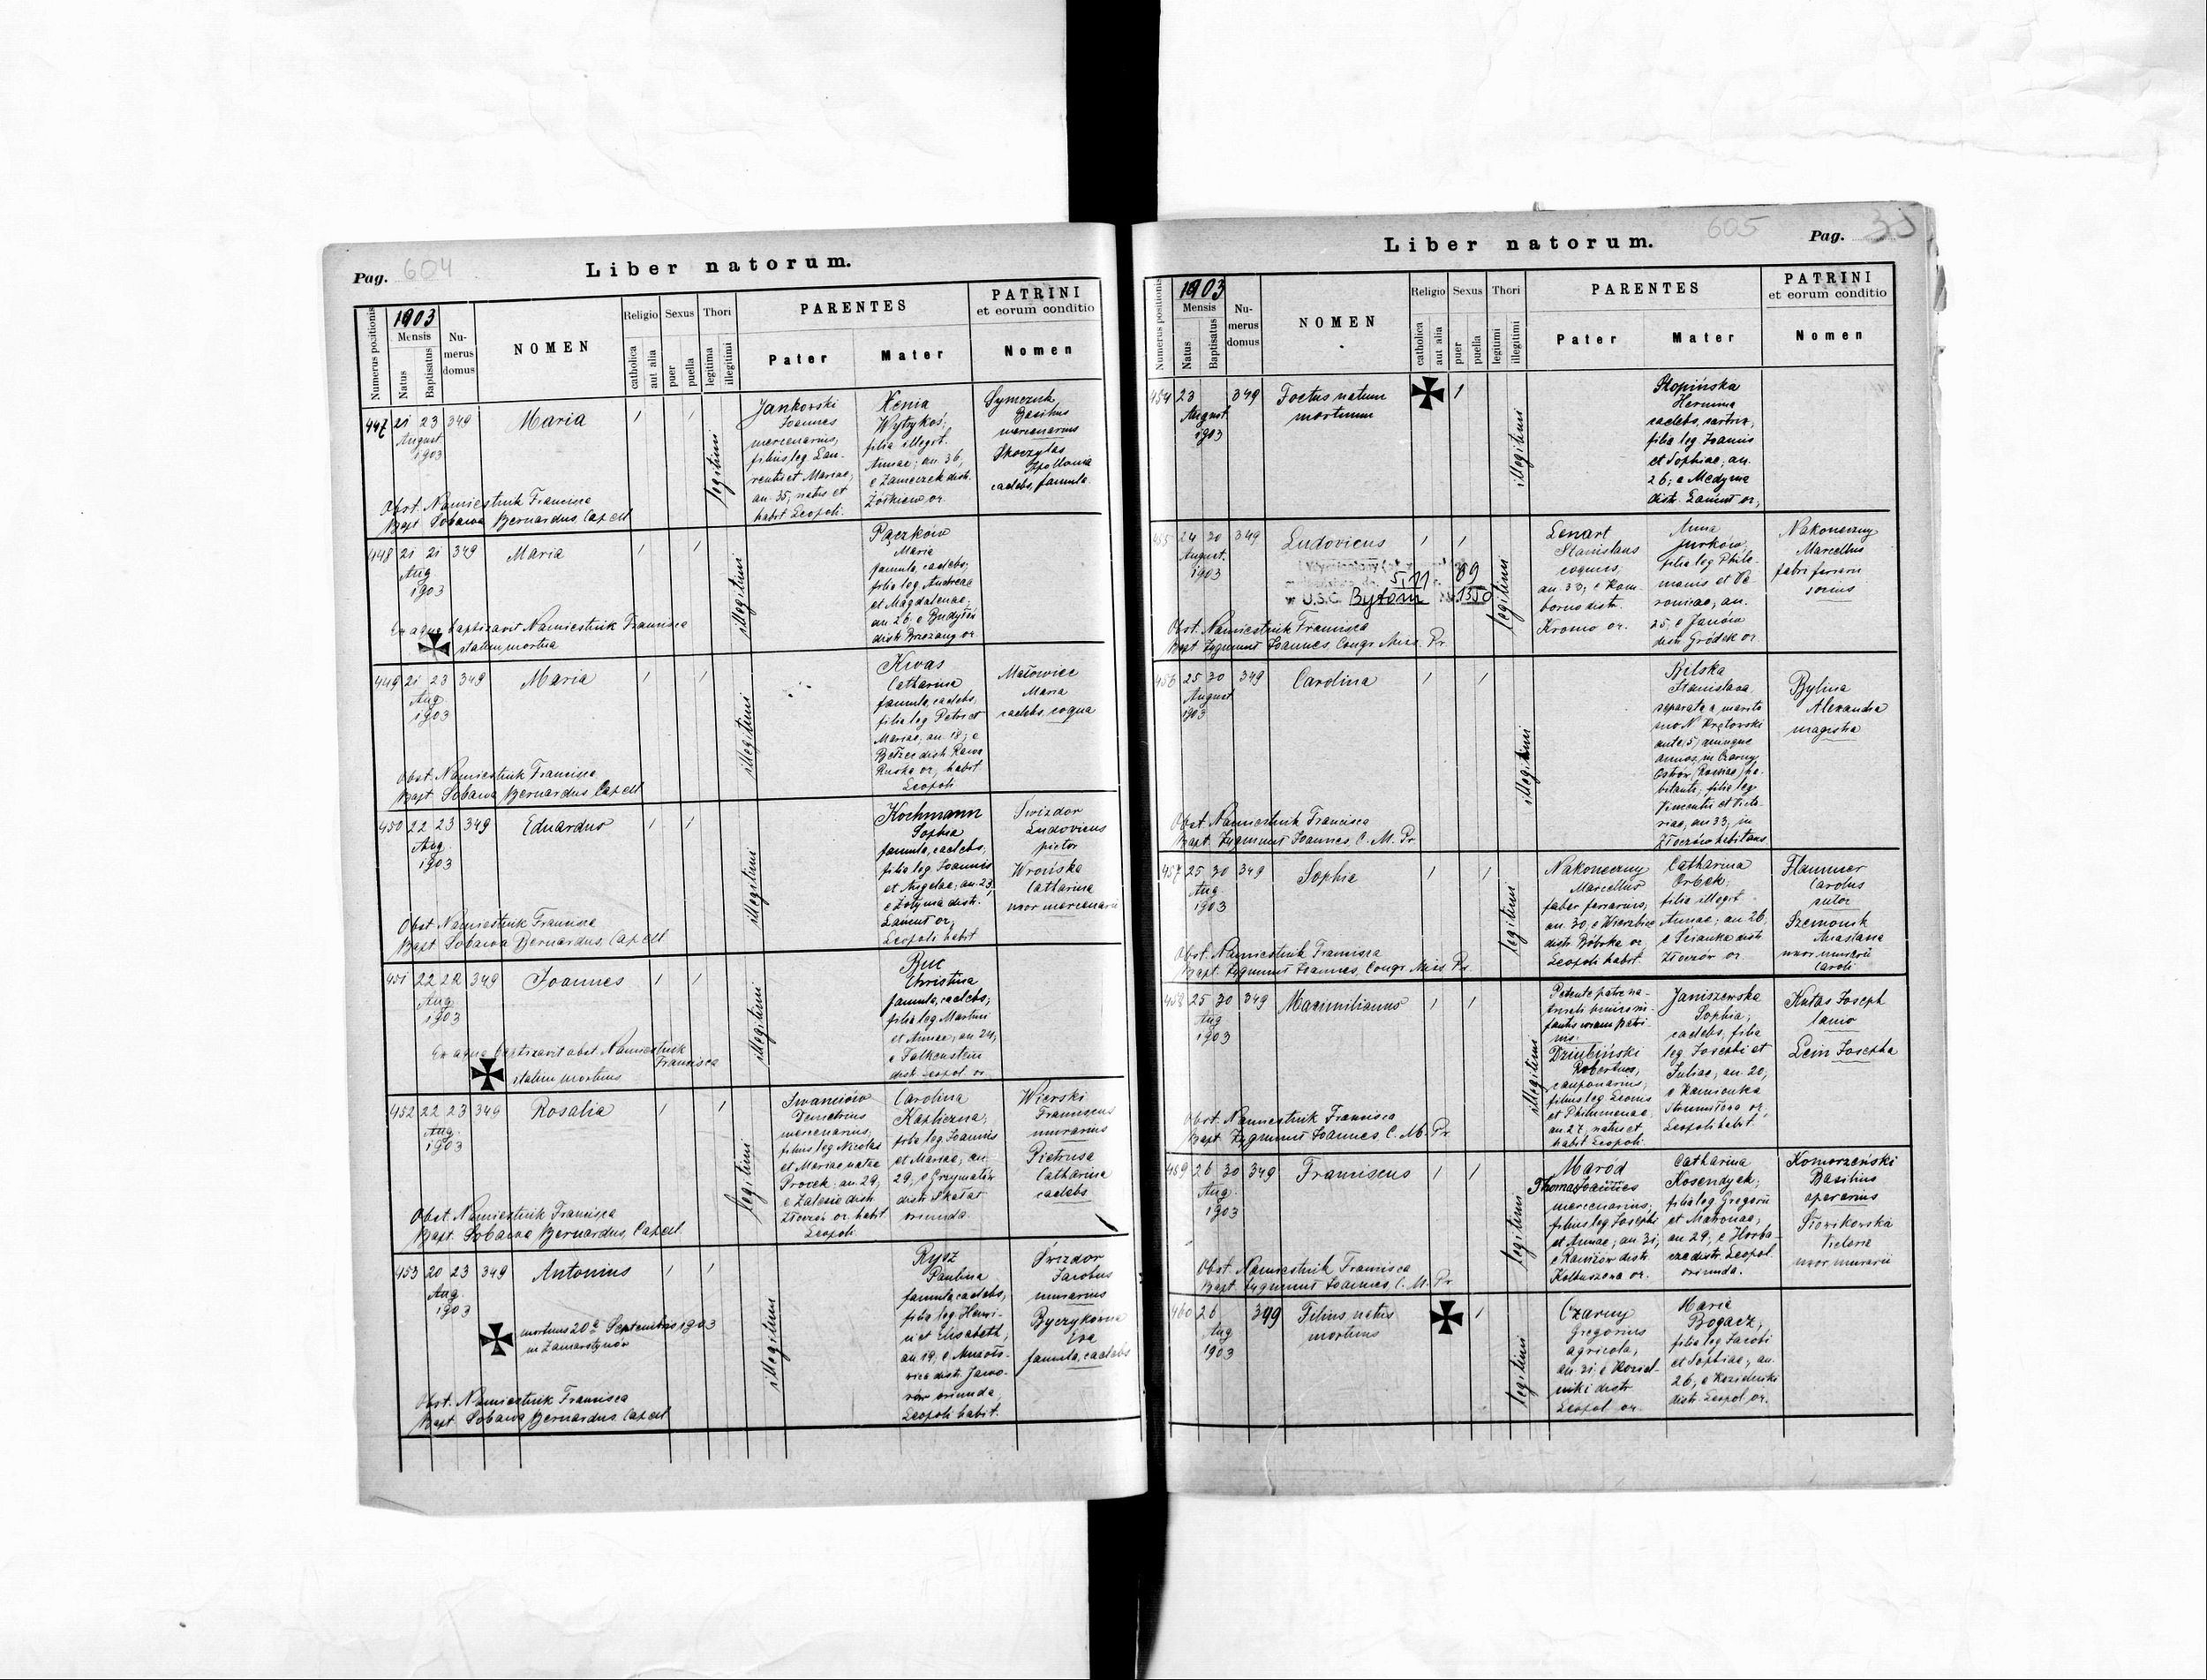 Pag. 604
Liber natorum.
Numerus positionis
1903
Mensis
Natus
Baptisatus
Numerus domus
NOMEN
Religio
catholica
aut alia
Sexus
puer
puella
Thori
legitima
illegitimi
PARENTES
Pater
Mater
PATRINI
et eorum conditio
Nomen
447 21 23 349 Maria
August
1903
legitimi
Jankowski
Joannes
mercenarius,
filius leg. Lau-
rentii et Mariae,
an. 35, natus et
habit Leopoli.
Xenia
Wytrykoś;
filia illegit.
Annae; an. 36,
e Zameczek distr.
Żółkiew or.
Symczuk
Basilius
mercenarius
Skoczylas
Apollonia
caelebs, famula
Obst. Namiestnik Francisca
Bapt Sobawa Bernardus, Cap. cll
448 21 21 349 Maria
Aug
1903
illegitimi
Pączków
Maria
famula, caelebs;
filia leg. Andreae
et Magdalenae;
an 26, e Budyłów
distr Brzeżany or.
Ex aqua baptizavit Namiestnik Francisca
statim mortua
449 21 23 349 Maria
Aug
1903
illegitimi
Kwas
Catharina
famula, caelebs,
filia leg Petri et
Mariae; an. 18; e
Bełzec distr. Rawa
Ruska or, habit
Leopoli
Małowiec
Maria
caelebs, coqua
Obst. Namiestnik Francisca
Bapt Sobawa Bernardus Cap. cll
450 22 23 349 Eduardus
Aug.
1903
illegitimi
Kochmann
Sophia
famula, caelebs,
filia leg. Joannis
et Angelae; an. 23,
e Żołynia distr.
Łańcut or,
Leopoli habit
Świzdor
Ludovicus
pictor
Wrońska
Catharina
uxor mercenarii
Obst. Namiestnik Francisca
Bapt Sobawa Bernardus, Cap. cll
451 22 22 349 Joannes
Aug
1903
illegitimi
Buc
Christina
famula, caelebs;
filia leg Martini
et Annae; an 24,
e Falkenstein
distr Leopol or
Ex aqua baptizavit obst. Namiestnik
Francisca
statim mortuus
452 22 23 349 Rosalia
Aug
1903
legitimi
Iwanciów
Demetrius
mercenarius,
filius leg Nicolai
et Mariae natae
an. 29,
e Zalesie distr.
Złoczów or. habit
Leopoli
Carolina
Kapliczna,
filia leg. Joannis
et Mariae; an
29, e Grzymałów
distr Skałat
oriunda.
Wierski
Franciscus
murarius
Pietrusa
Catharina
caelebs
Obst. Namiestnik Francisca
Bapt. Sobawa Bernardus, Cap. cll.
453 20 23 349 Antonius
Aug.
1903
illegitimi
Rysz
Paulina
famula caelebs,
filia leg. Henri-
ci et Elisabeth,
an. 19, e
distr. Jawo-
rów oriunda,
Leopoli habit.
Świzdor
Jacobus
murarius
Byczykówna
Eva
famula, caelebs
mortuus 20ª Septembris 1903
in Zamarstynów
Obst. Namiestnik Francisca
Bapt. Sobawa Bernardus Cap. cll
Liber natorum.
605
Pag. 35
Numerus positionis
1903
Mensis
Natus
Baptisatus
Numerus domus
NOMEN
Religio
catholica
aut alia
Sexus
puer
puella
Thori
legitimi
illegitimi
PARENTES
Pater
Mater
PATRINI
et eorum conditio
Nomen
454 23 349 Foetus natum
August mortuum
1903
illegitimi
Stopińska
Hermina
caelebs, sartrix,
filia leg. Joannis
et Sophiae; an.
26; e Medynia
distr. Łańcut or,
455 24 30 349 Ludovicus
August.
1903
5,11 89
w U.S.C. Bytom 1350
legitimi
Lenart
Stanislaus
coquus;
an 33; e Kom-
bornia distr.
Krosno or.
Anna
Jurków,
filia leg Philo-
monis et Ve
ronicae; an.
25, e Janów
distr. Gródek or.
Nakoneczny
Marcellus
fabri ferrarii
socius
Obst. Namiestnik Francisca
Bapt Zygmunt Joannes, Congr. Miss. Pr.
456 25 30 349 Carolina
August
1903
illegitimi
Bilska
Stanislava
separata a marito
suo N Krętowski
ante (5) quinque
annos, in Czarny
Ostrów (Rossiae) ha-
bitante; filia leg
Vincentii et Victo-
riae, an 33, in
Złoczów habitans
Bylina
Alexandra
magistra
Obst. Namiestnik Francisca
Bapt. Zygmunt Joannes, C. M. Pr.
457 25 30 349 Sophia
Aug.
1903
legitimi
Nakoneczny
Marcellus
faber ferrarius,
an. 30, e Wierzbica
distr Bóbrka or,
Leopoli habit.
Catharina
Orbek;
filia illegit
Annae; an 26,
e Ścianka distr.
Złoczów or.
Flaumer
Carolus
sutor
Szemonik
Anastasia
uxor murarii
Caroli
Obst. Namiestnik Francisca
Bapt. Zygmunt Joannes, Congr Miss Pr.
458 25 30 349 Maximilianus
Aug
1903
illegitimi
Petente patre na-
turali huius in-
fantis
Dziubiński
Robertus,
cauponarius,
filius leg Leonis
et Philumenae,
an. 27, natus et
habit Leopoli.
Janiszewska
Sophia;
caelebs, filia
leg. Josephi et
Juliae, an. 20,
e Kamionka
Strumiłowa or,
Leopoli habit.
Kutas Joseph
lanio
Lein Josepha
Obst. Namiestnik Francisca
Bapt. Zygmunt Joannes C. M. Pr.
459 26 30 349 Franciscus
Aug.
1903
legitimi
Maród
Thomas Joannes
mercenarius;
filius leg Josephi
et Annae; an 31;
e Raniżów distr.
Kolbuszowa or.
Catharina
Kosendyek;
filia leg Gregorii
et Matronae,
an. 29; e Horba-
cze distr. Leopol
oriunda.
Komorzeński
Basilius
operarius
Słowikowska
Victoria
uxor murarii
Obst. Namiestnik Francisca
Bapt. Zygmunt Joannes, C. M. Pr.
460 26 399 Filius natus
Aug mortuus
1903
legitimi
Czarny
Gregorius
agricola,
an. 31 e Koziel-
niki distr
Leopol or.
Maria
Bogacz,
filia leg Jacobi
et Sophiae; an.
26, e Kozielniki
distr. Leopol or.